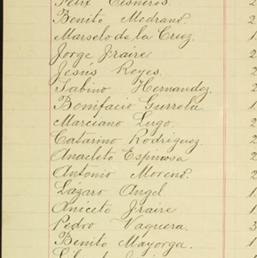 Felix Cisneros. 2
Benito Medrano. 2
Marselo de la Cruz. 1
Jorge Fraire 2
Jesús Reyes. 2
Sabino Hernandez. 2
Bonifacio Gurrola 1
Marciano Lugo. 2
Catarino Rodriguez. 2
Anacleto Espinosa 2
Antonio Moreno. 2
Lázaro Angel. 1
Aniceto Fraire 1
Pedro Vaquera. 3
Benito Mayorga. 1